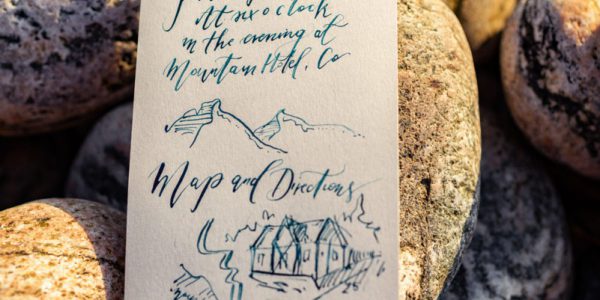 At six o'clock
in the evening at
Mountain Hotel, Co
Map and Directions